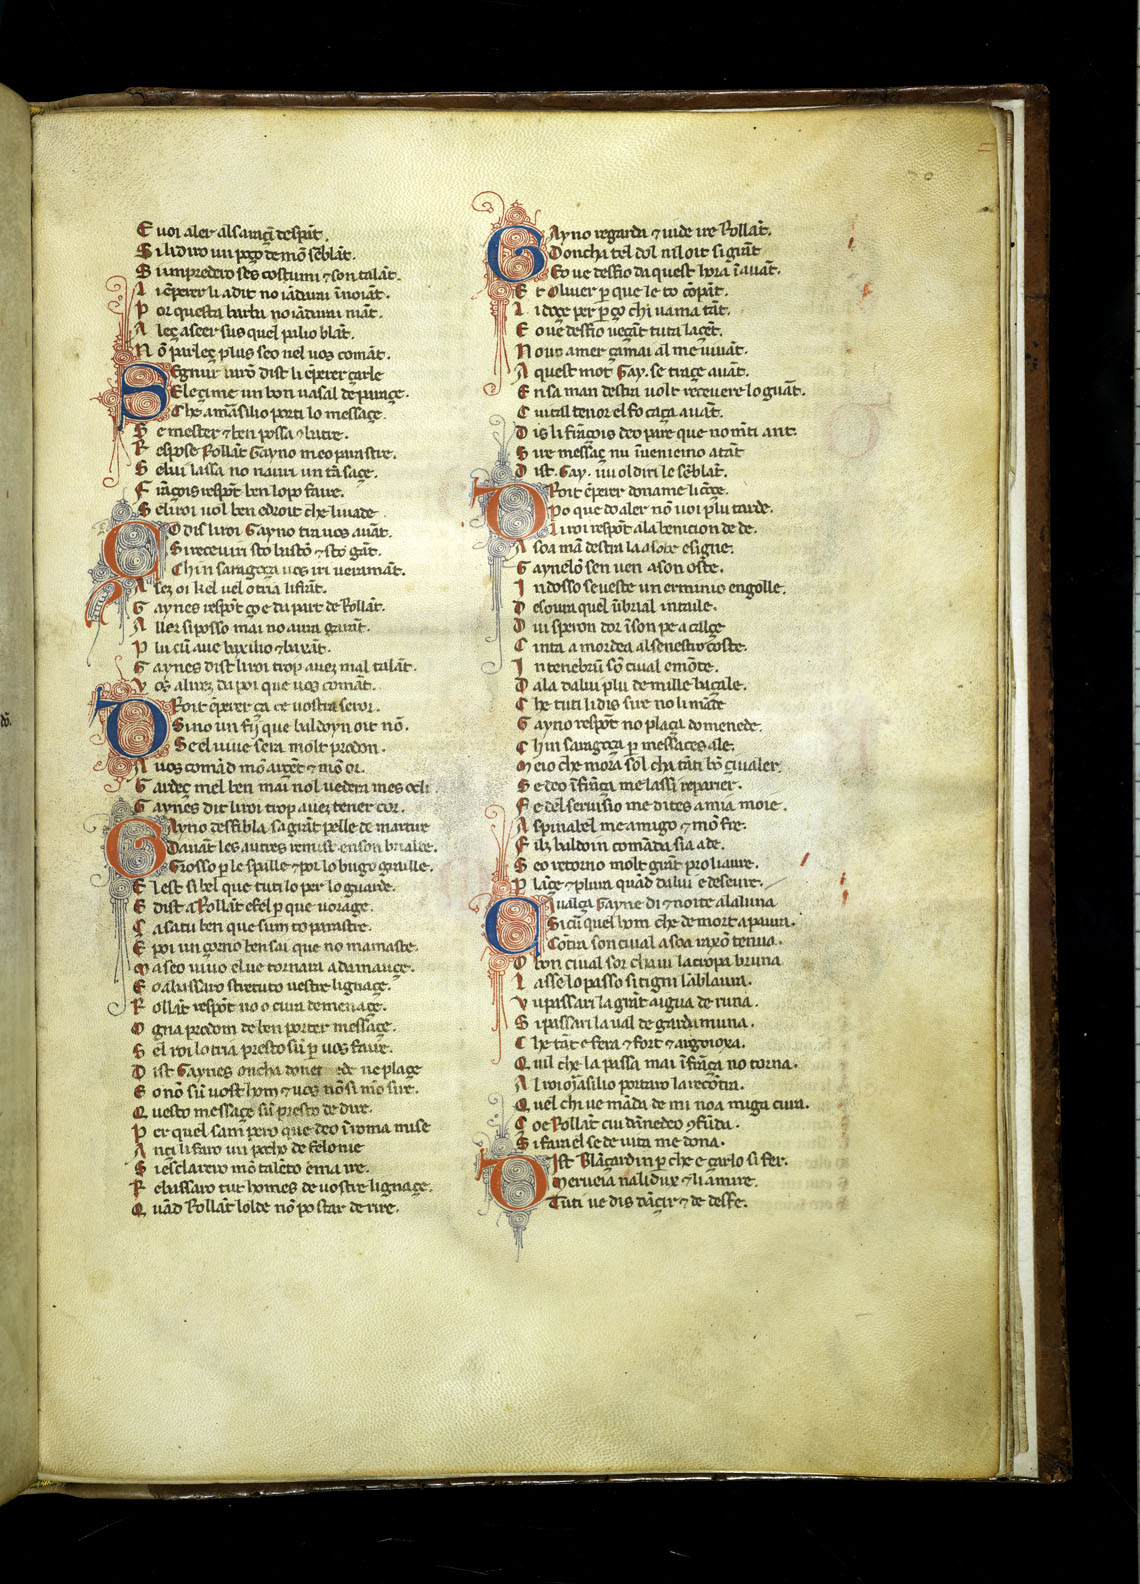 E uoi aler al saraçĩ despãt.
S i li diro un poço de mõ sẽblãt.
S i inprendero ses costumi ⁊ son talãt.
L i ẽperer li a dit no iãdarai ĩuoiãt.
P or questa barba no iãdarai niãt.
A leç aseer sus quel palio blãt.
N õ parleç plus seo nel uos comãt.
S Egnur barõ dist li ẽperer çarle
Eleçime un bon uasal de paraçe.
Che amãsilio porti lo messaçe.
S e mester ⁊ ben possa ⁊ batre.
R espose Rollãt Gayno meo parastre.
S e lui lassa no nauri un tã saçe.
F rãçois respõt ben lopo faire.
S e li roi uol ben e droit che li uade
C O dis li roi Gayno tra uos auãt.
Si receuiri sto bastõ ⁊ sto gãt.
Chi n saragoça uos iri ueramãt.
A seç oi kel uel otria li frãt.
G aynes respõt ço e da part de Rollãt.
A ller si posso mai no aura garãt.
P lu cũ aue baxilio ⁊ baxãt.
G aynes dist li roi trop aueç mal talãt.
V os alireç da poi que uos comãt.
D Roit ẽperer ça ce uostra seror.
Si no un fiȷ que baldoyn oit nõ.
Se el uiue sera molt prodon.
A uos comãd mõ arçẽt ⁊ mõ or.
G ardeç mel ben mai nol uedera mes ocli
G aynes dit li roi trop aueç tener cor.
G Ayno desfibla sa grãt pelle de martre
Dauãt les autres remist en son brialde.
Grosso p le spalle ⁊ por lo bugo graille.
E l est si bel que tuti lo per lo guarde.
E dist a Rollãt efel p que uorage.
C a satu ben que sum to parastre.
E poi un çorno ben sai que no mamaste.
M a seo uiuo el ue tornara a damançe.
E o abassaro stretuto uestre lignaçe.
R ollãt respõt no o cura de menaçe.
O gna prodom de ben porter messaçe.
S el roi lo tria presto sũ p uos faire.
D ist Gaynes oncha de ne plaçe
E o nõ sũ uost hom ⁊ uos nõ si mio sire.
Q uesto messaçe sũ presto de dire.
P er quel sant pero que deo ĩ roma mise
A nçi li faro un pocho de felonie
S i esclarero mõ talẽto ẽ ma ire.
R ebassaro tut homes de uostre lignaçe.
Q uãd Rollãt lolde nõ po star de rire.
G Ayno regarda ⁊ uide ire Rollãt.
Doncha tel dol nisl oit si grãt
Eo ue desfio da quest hora ĩ auãt.
E t Oliuer p que le to cõpãt.
L i doçe per p ço chi uama tãt.
E o ue desfio ueçãt tuta la çẽt.
N o uos amer çamai al me uiuãt.
A quest mot Gay. se traçe auãt.
E n sa man destra uolt receuere lo guãt.
C ui tasl tenor el fo caça auãt.
D is li frãçois deo pare que no mãti ant.
S ire messaç nu ĩueniemo atãt
D ist .Gay. nu ol diri le sẽblãt.
D Roit ẽperer doname li cõçe.
Po que do aler nõ uoi plu tarde.
Li roi respõt a la benicion de de.
A soa mã destra la asolse e signe.
G aynelõ sen uen a son oste.
I ndosso se ueste un erminio engolle.
D e soura quel ũ brial intaile.
D ui speron dor ĩ son pe a calçe
C inta a mordea al senestro coste.
I n tenebrũ sõ ciual emõte.
D ala dalui plu de mille baçale.
C he tuti li dis sire no li made
G ayno respõt no plaça domenede.
C hi n saragoça p messaces ale.
M eio che mora sol cha tãti bõ ciualer.
S e deo ĩ frãça me lassi repairier.
F e del seruisio me dites a mia moie.
A spinabel me amigo ⁊ mõ fre.
F ilz baldoin comãda sia ade.
S eo retorno molt grãt pro li aure.
P lãçe ⁊ plura quãd dalui e deseure.
C Aualça Gayne di ⁊ noite a la luna
Si cũ quel hom che de mort a paura.
Cõtra son ciual a soa raxõ tenua.
O bon ciual sor cha ui la cropa bruna
L asse lo passo si tigni lablaura.
V u passari la grãt aigua de runa.
S i passari la ual de garda muna.
C he tãt e fera ⁊ fort ⁊ argoioxa.
Q uil che la passa mai ĩ frãça no torna.
A l roi mãsilio portaro la recõtra.
Q uel chi ue mãda de mi no a miga cura.
C o e Rollãt cui dãnedeo ꝯfũda.
S i fara el se de uita me dona.
D ist Blãçardin p che e çarlo si fer.
Merueia nal idire ⁊ li amire.
Tuti ue dis dãçir ⁊ de desfe.